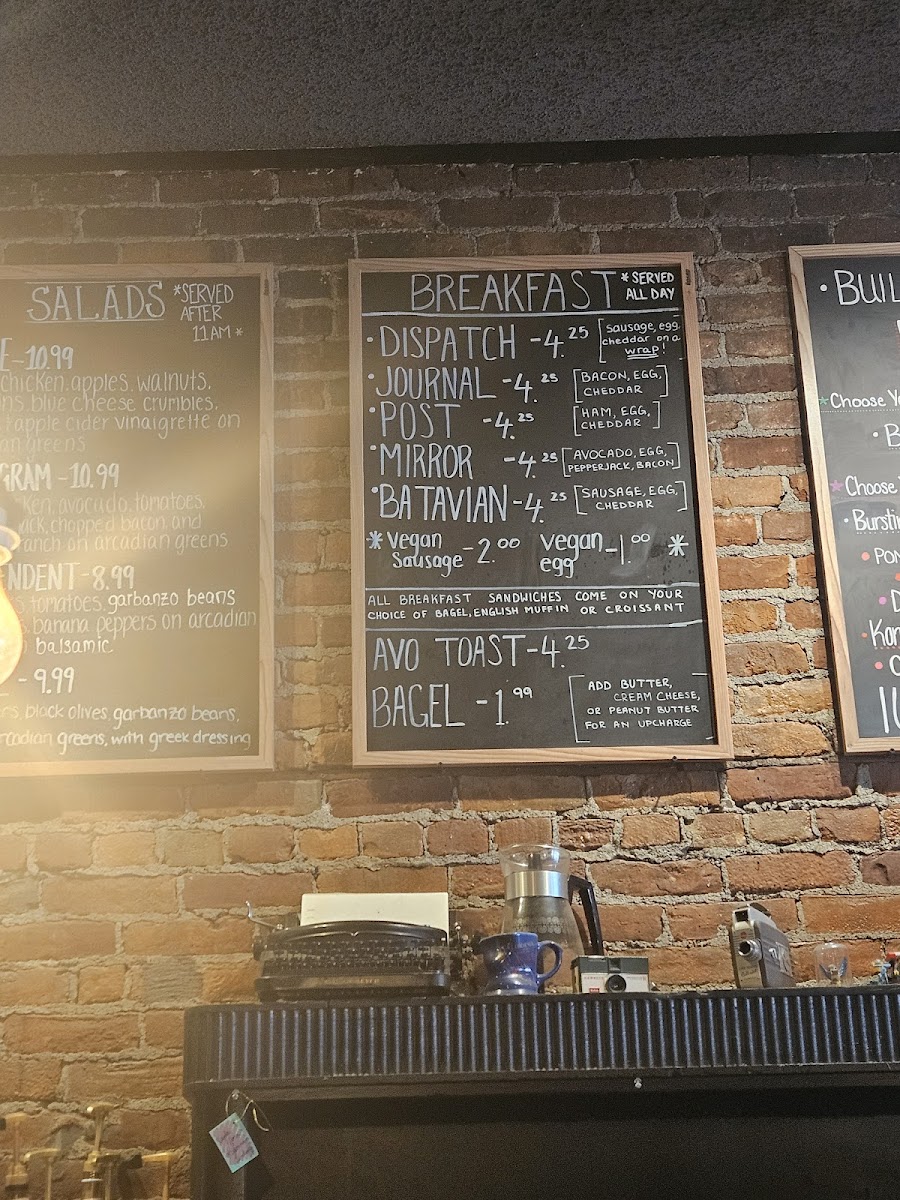 SALADS *SERVED
AFTER
11AM*
E-10.99
chicken, apples, walnuts,
blue cheese crumbles,
apple cider vinaigrette on
greens
GRAM-10.99
avocado, tomatoes,
chopped bacon and
ranch on arcadian greens
NDENT-8.99
tomatoes, garbanzo beans
banana peppers on arcadian
balsamic
- 9.99
black olives, garbanzo beans,
greens, with greek dressing
BREAKFAST *SERVED
ALL DAY
•DISPATCH -4.25 [sausage, egg,
cheddar on a
wrap!]
•JOURNAL -4.25 [BACON, EGG,
CHEDDAR]
•POST -4.25 [HAM, EGG,
CHEDDAR]
•MIRROR -4.25 [AVOCADO, EGG,
PEPPERJACK, BACON]
•BATAVIAN-4.25 [SAUSAGE, EGG,
CHEDDAR]
*Vegan
Sausage-2.00 Vegan
egg-1.00 *
ALL BREAKFAST SANDWICHES COME ON YOUR
CHOICE OF BAGEL, ENGLISH MUFFIN OR CROISSANT
AVO TOAST-4.25
BAGEL -1.99 [ADD BUTTER,
CREAM CHEESE,
OR PEANUT BUTTER
FOR AN UPCHARGE]
•BUIL
*Choose Yo
•B
*Choose
•Burstin